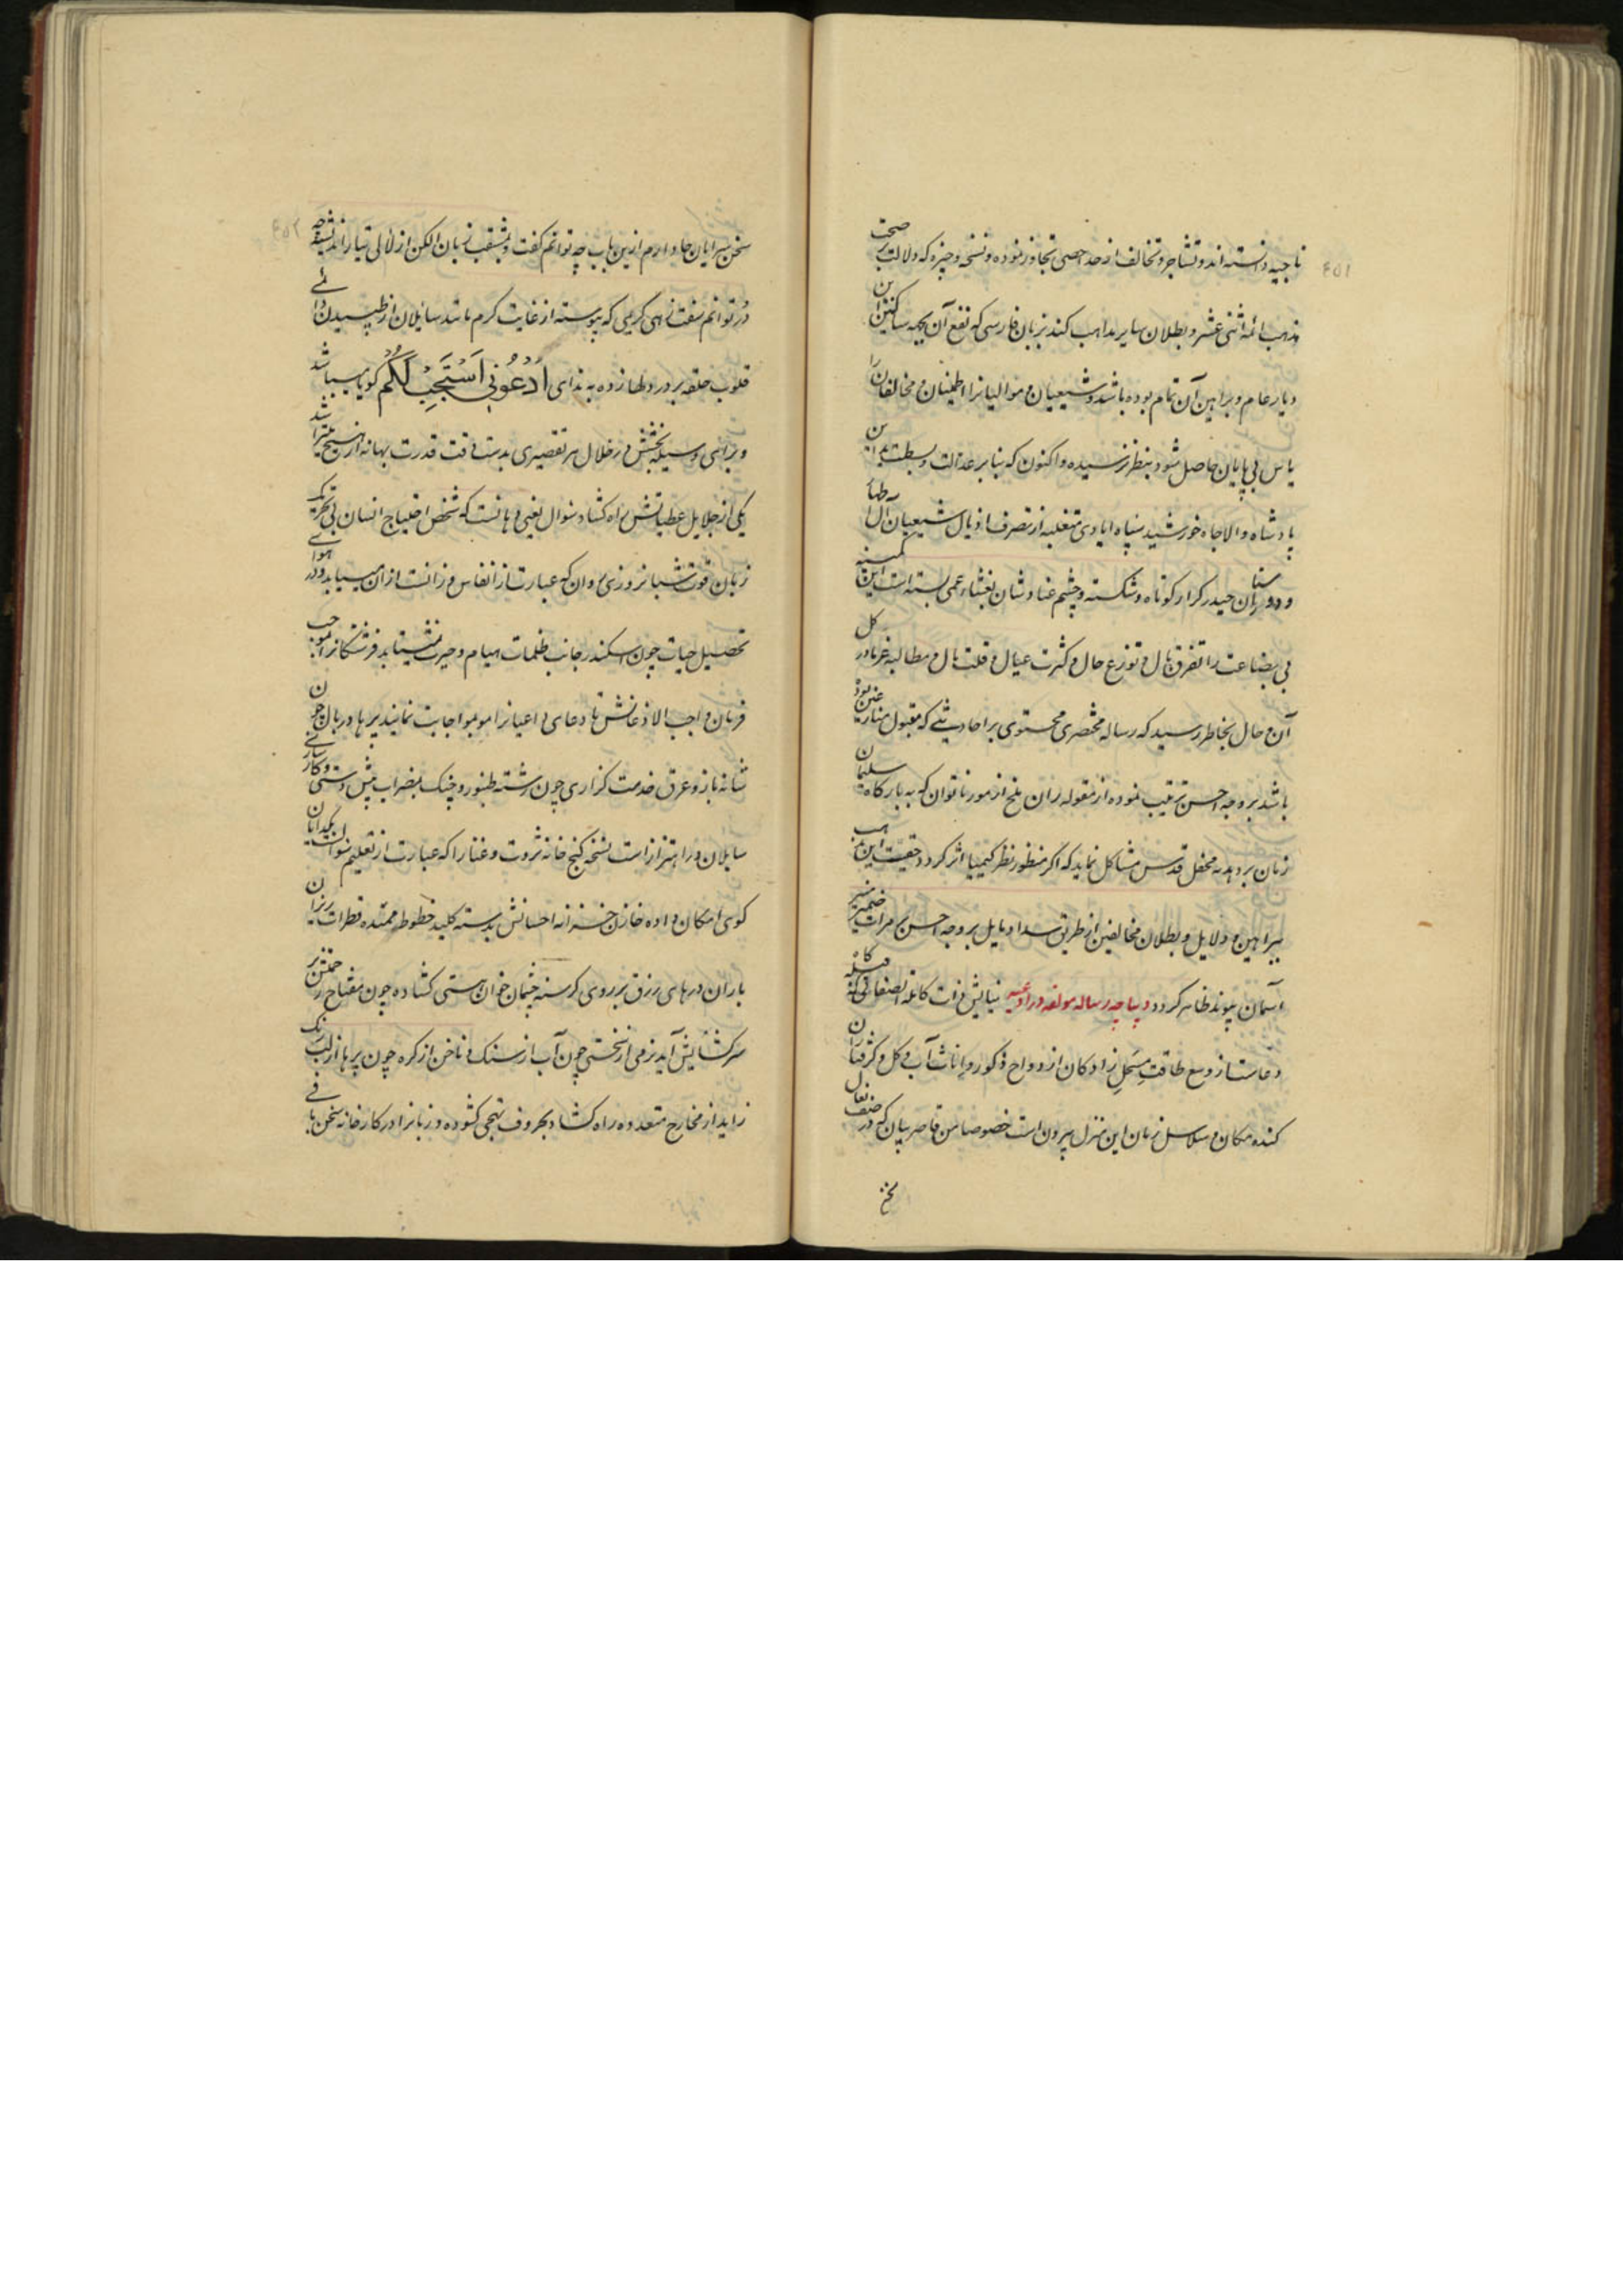 ناجیه دانسته اند و تشاجر و تخالف از حد احصی تجاوز نموده و نسخه وجیزه که دلالت بر صحت
مذهب ائمه اثنی عشر و بطلان سایر مذاهب کند بزبان فارسی که نفع آن بجمیع ساکنین این
دیار عام و براهین آن تمام بوده باشد و شیعیان و موالیانرا اطمینان و مخالفان را
یاس بی پایان حاصل شود بنظر نرسیده و اکنون که بنا بر عدالت و بسطت ید این
پادشاه والاجاه خورشید سپاه ایادی متغلبه از تصرف اذیال شیعیان آل طها
و دوستان حیدر کرار کوتاه و شکسته و چشم عناد شان بغشاء عمی بسته است این کمینه
بی بضاعت را با تفرق بال و توزع حال و کثرت عیال و قلت مال و مطالبه غرما در کل
آن و حال بخاطر رسید که رساله مختصری محتوی بر احادیثی که مقبول
باشد بر وجه احسن ترتیب نموده از مقوله ران ملخ از مور ناتوان که به بارگاه سلیمان
زمان برد هدیه محفل قدس مشاکل نماید که اگر منظور نظر کیمیا اثر گردد حقیت این مذهب
ببراهین و دلایل و بطلان مخالفین از طریق سداد بر وجه احسن بر مرات ضمیر منیر
آسمان پیوند ظاهر گردد دیباچه رساله مولفه در ادعیه نیایش ذات کامله الصفاتی که قبله گاه
دعاست از وسع طاقت زادگان ازدواج ذکور و اناث آب و گل و گرفتاران
کنده مکان و سلاسل زمان این منزل بیرون است خصوصا من قاصر بیان که در صف نعال
سخن
سخن سرایان جا دارم ازین باب چه توانم گفت و بمثقب زبان الکن از لالی تیار اندیشه چه
در توانم سفت زهی کریمی که پیوسته از غایت کرم مانند سایلان از طپیدن
قلوب حلقه بر در دلها زده به ندای اُدْعُونِی اَسْتَجِبْ لَکُمْ گویا میباشد
و برای وسیله بخشش در خلال هر تقصیری بدست وقت قدرت بهانه
یکی از جلایل عطیاتش راه گشاد سوال یعنی دهانست که شخص احتیاج انسان بی تحریک
زبان قوت شبانروزی روان که عبارت از انفاس وزانست از ان مییابد و در هوای
تحصیل حیات چون اسکندر جانب ظلمات هیام و حیرت نمیشتابد فرشتگانرا بموجب
فرمان واجب الاذعانش تا دعای داعیانرا مو بمو اجابت نمایند پرها در بال چون
شانه باز و عرق خدمت گزاری چون رشته طنبور و چنگ بمضراب پیش دستی و کارسازی
سایلان در اهتزاز است نسخه گنج خانه ثروت و غنا را که عبارت از تعلیم سوالست بگدایان
کوی امکان داده خازن خزانه احسانش بدسته کلید خطوط ممتده قطرات ریزان
باران درهای رزق بر روی گرسنه چشمان خوان هستی گشاده چون مفتاح رحمتش بر
سر گشایش آید نرمی از سختی چون آب از سنگ و ناخن از گره چون پرها از لب
زاید از مخارج متعدده راه گشاد بحروف تهجی گشوده و زبانرا در کارخانه سخن بافی